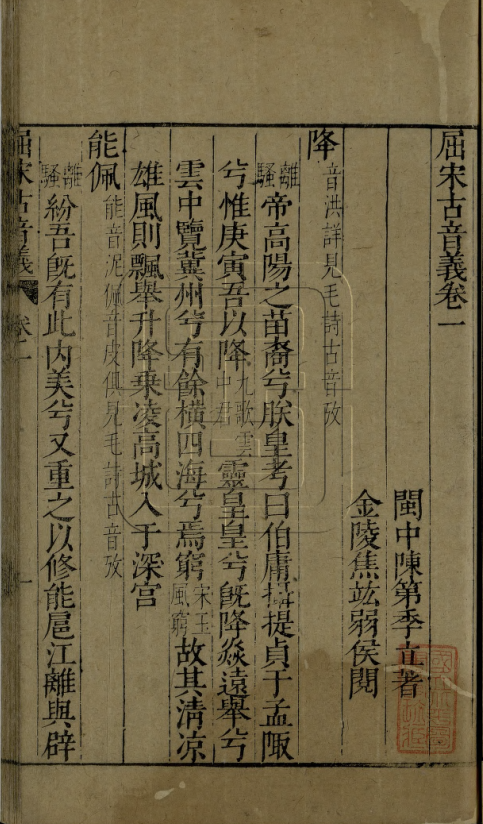 屈宋古音義卷一
閩中陳第季立著
金陵焦竑弱侯閱
降音洪詳見毛詩古音攷
離騷帝高陽之苗裔兮朕皇考曰伯庸攝提貞于孟陬
兮惟庚寅吾以降九歌雲中君靈皇皇兮既降猋遠舉兮
雲中覽冀州兮有餘橫四海兮焉窮宋玉風賦故其清凉
雄風則飄舉升降乗凌高城入于深宫
能佩能音泥佩音皮俱見毛詩古音攷
離騷紛吾旣有此内美兮又重之以修能扈江離與辟
屈宋古音義 卷一 一